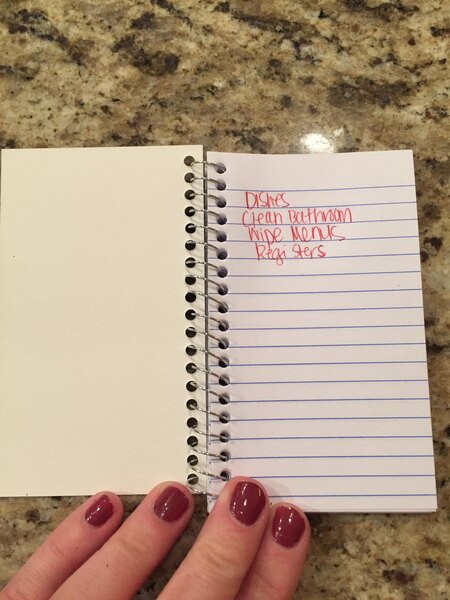 Dishes
Clean Bathroom
Wipe Menus
Registers